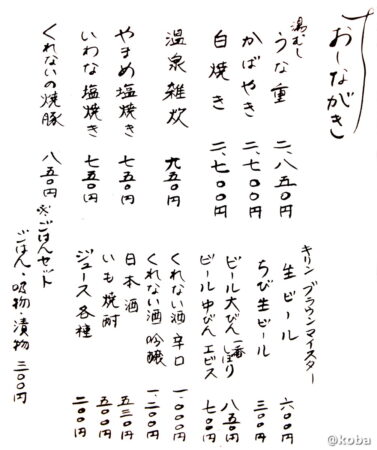 おしながき
湯むし
うな重 二、八五〇円
かばやき 二、七〇〇円
白焼き 二、七〇〇円
温泉雑炊 九五〇円
やまめ塩焼き 七五〇円
いわな塩焼き 七五〇円
くれないの焼豚 八五〇円
※ごはんセット
ごはん・吸物・漬物 三〇〇円
キリン ブラウンマイスター
生ビール 六〇〇円
ちび生ビール 三〇〇円
ビール大びん 一番しぼり 八五〇円
ビール中びん エビス 七〇〇円
くれない酒 辛口 一、〇〇〇円
くれない酒 吟醸 一、二〇〇円
日本酒 五三〇円
いも焼酎 五〇〇円
ジュース各種 二〇〇円
@koba